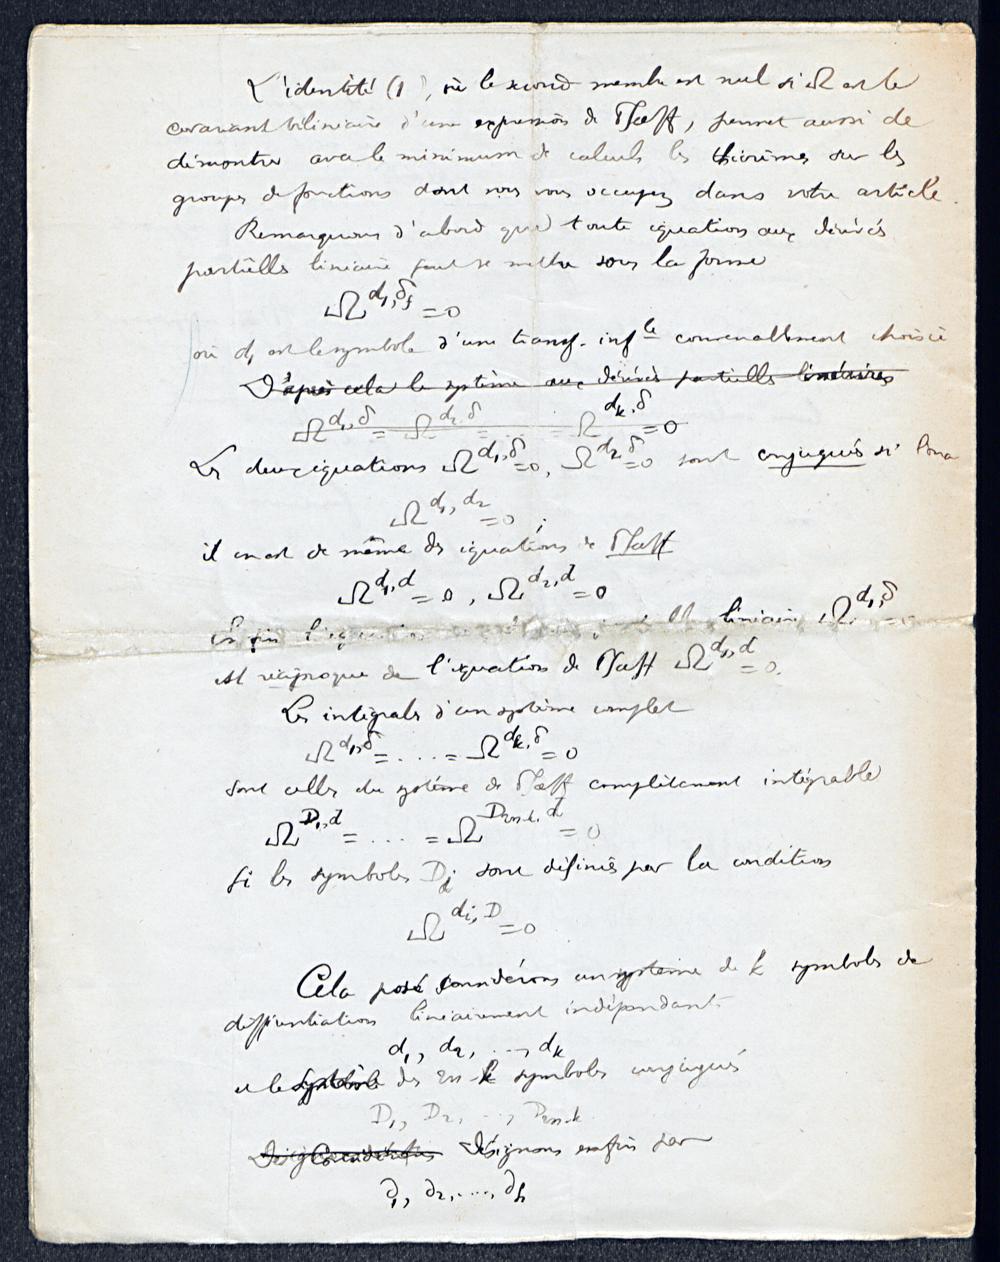 L'identité (1), où le second membre est nul si Ω est le
covariant bilinéaire d'une expression de Pfaff, permet aussi de
démontrer avec le minimum de calculs les théorèmes sur les
groupes de fonctions dont vous vous occupez dans votre article.
Remarquons d'abord que toute équation aux dérivées
partielles linéaire peut se mettre sous la forme
Ω^{d_1, δ_f} = 0
où d_1 est le symbole d'une transf. inf^{le} convenablement choisie
D'après cela le système aux dérivées partielles linéaires
Ω^{d_1, δ} = Ω^{d_2, δ} = ... = Ω^{d_k, δ} = 0
Les deux équations Ω^{d_1, δ} = 0, Ω^{d_2, δ} = 0 sont conjuguées si l'on a
Ω^{d_1, d_2} = 0 ;
il en est de même des équations de Pfaff
Ω^{d_1, d} = 0, Ω^{d_2, d} = 0
Enfin l'équation linéaire Ω^{d_1, δ} = 0
est réciproque de l'équation de Pfaff Ω^{d_1, d} = 0.
Les intégrales d'un système complet
Ω^{d_1, δ} = .... = Ω^{d_k, δ} = 0
sont celles du système de Pfaff complètement intégrable
Ω^{D_1, d} = ... = Ω^{D_{2n-k}, d} = 0
si les symboles D_j sont définis par la condition
Ω^{d_i, D} = 0
Cela posé considérons un système de k symboles de
différentiation linéairement indépendants
d_1, d_2, ..., d_k
et le système des 2n-k symboles conjugués
D_1, D_2, ..., D_{2n-k}.
Désignons enfin par
∂_1, ∂_2, ..., ∂_h